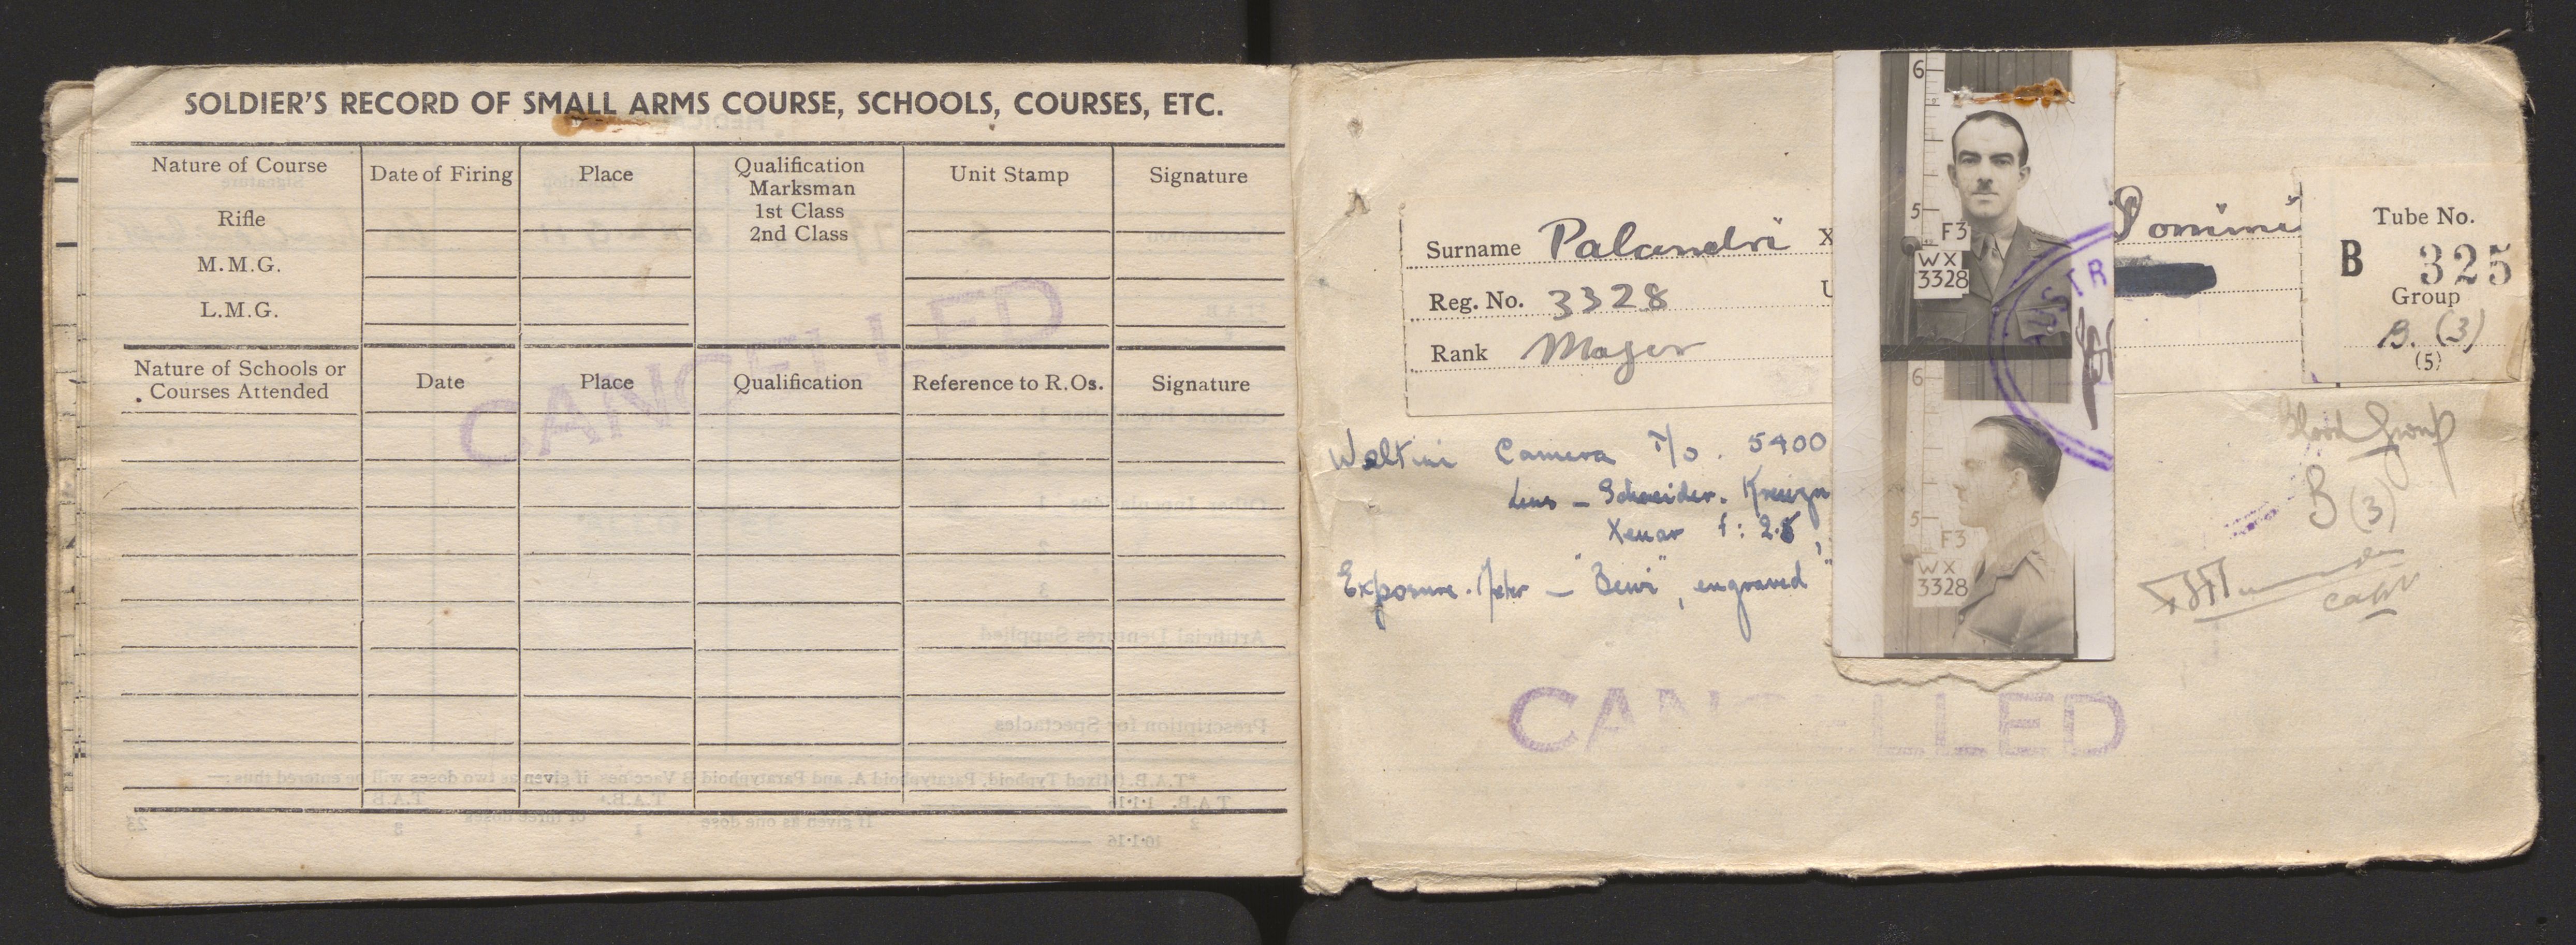 SOLDIER'S RECORD OF SMALL ARMS COURSE, SCHOOLS, COURSES, ETC.
Nature of Course Date of Firing Place Qualification Unit Stamp Signature
Marksman
1st Class
2nd Class
Rifle
M.M.G.
L.M.G.
CANCELLED
Nature of Schools or Courses Attended Date Place Qualification Reference to R.Os. Signature
Surname Palandri X
Reg. No. 3328 U
Rank Major
Tube No.
B 325
Group
B. (3)
(5)
6
5
F3
WX
3328
USTR
6
5
F3
WX
3328
Weltini Camera No. 5400
Lens – Schneider. Kreuzn
Xenar f: 2.8,
Exposure. Meter – "Bewi", engraved "
Blood Group
B (3)
Capt
CANCELLED